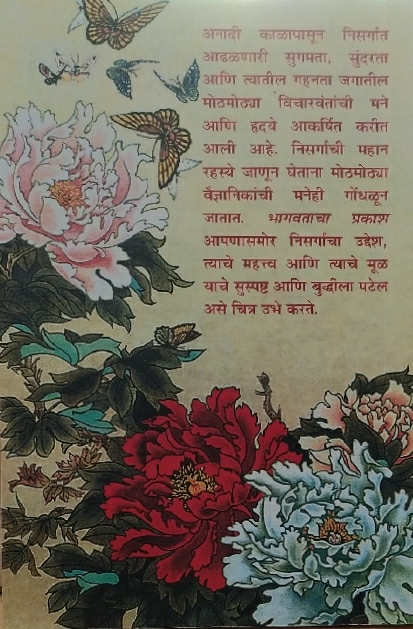 अनादी काळापासून निसर्गात
आढळणारी सुगमता, सुंदरता
आणि त्यातील गहनता जगातील
मोठमोठ्या विचारवंतांची मने
आणि हृदये आकर्षित करीत
आली आहे. निसर्गाची महान
रहस्ये जाणून घेताना मोठमोठ्या
वैज्ञानिकांची मनेही गोंधळून
जातात. भागवताचा प्रकाश
आपणासमोर निसर्गाचा उद्देश,
त्याचे महत्त्व आणि त्याचे मूळ
याचे सुस्पष्ट आणि बुद्धीला पटेल
असे चित्र उभे करते.